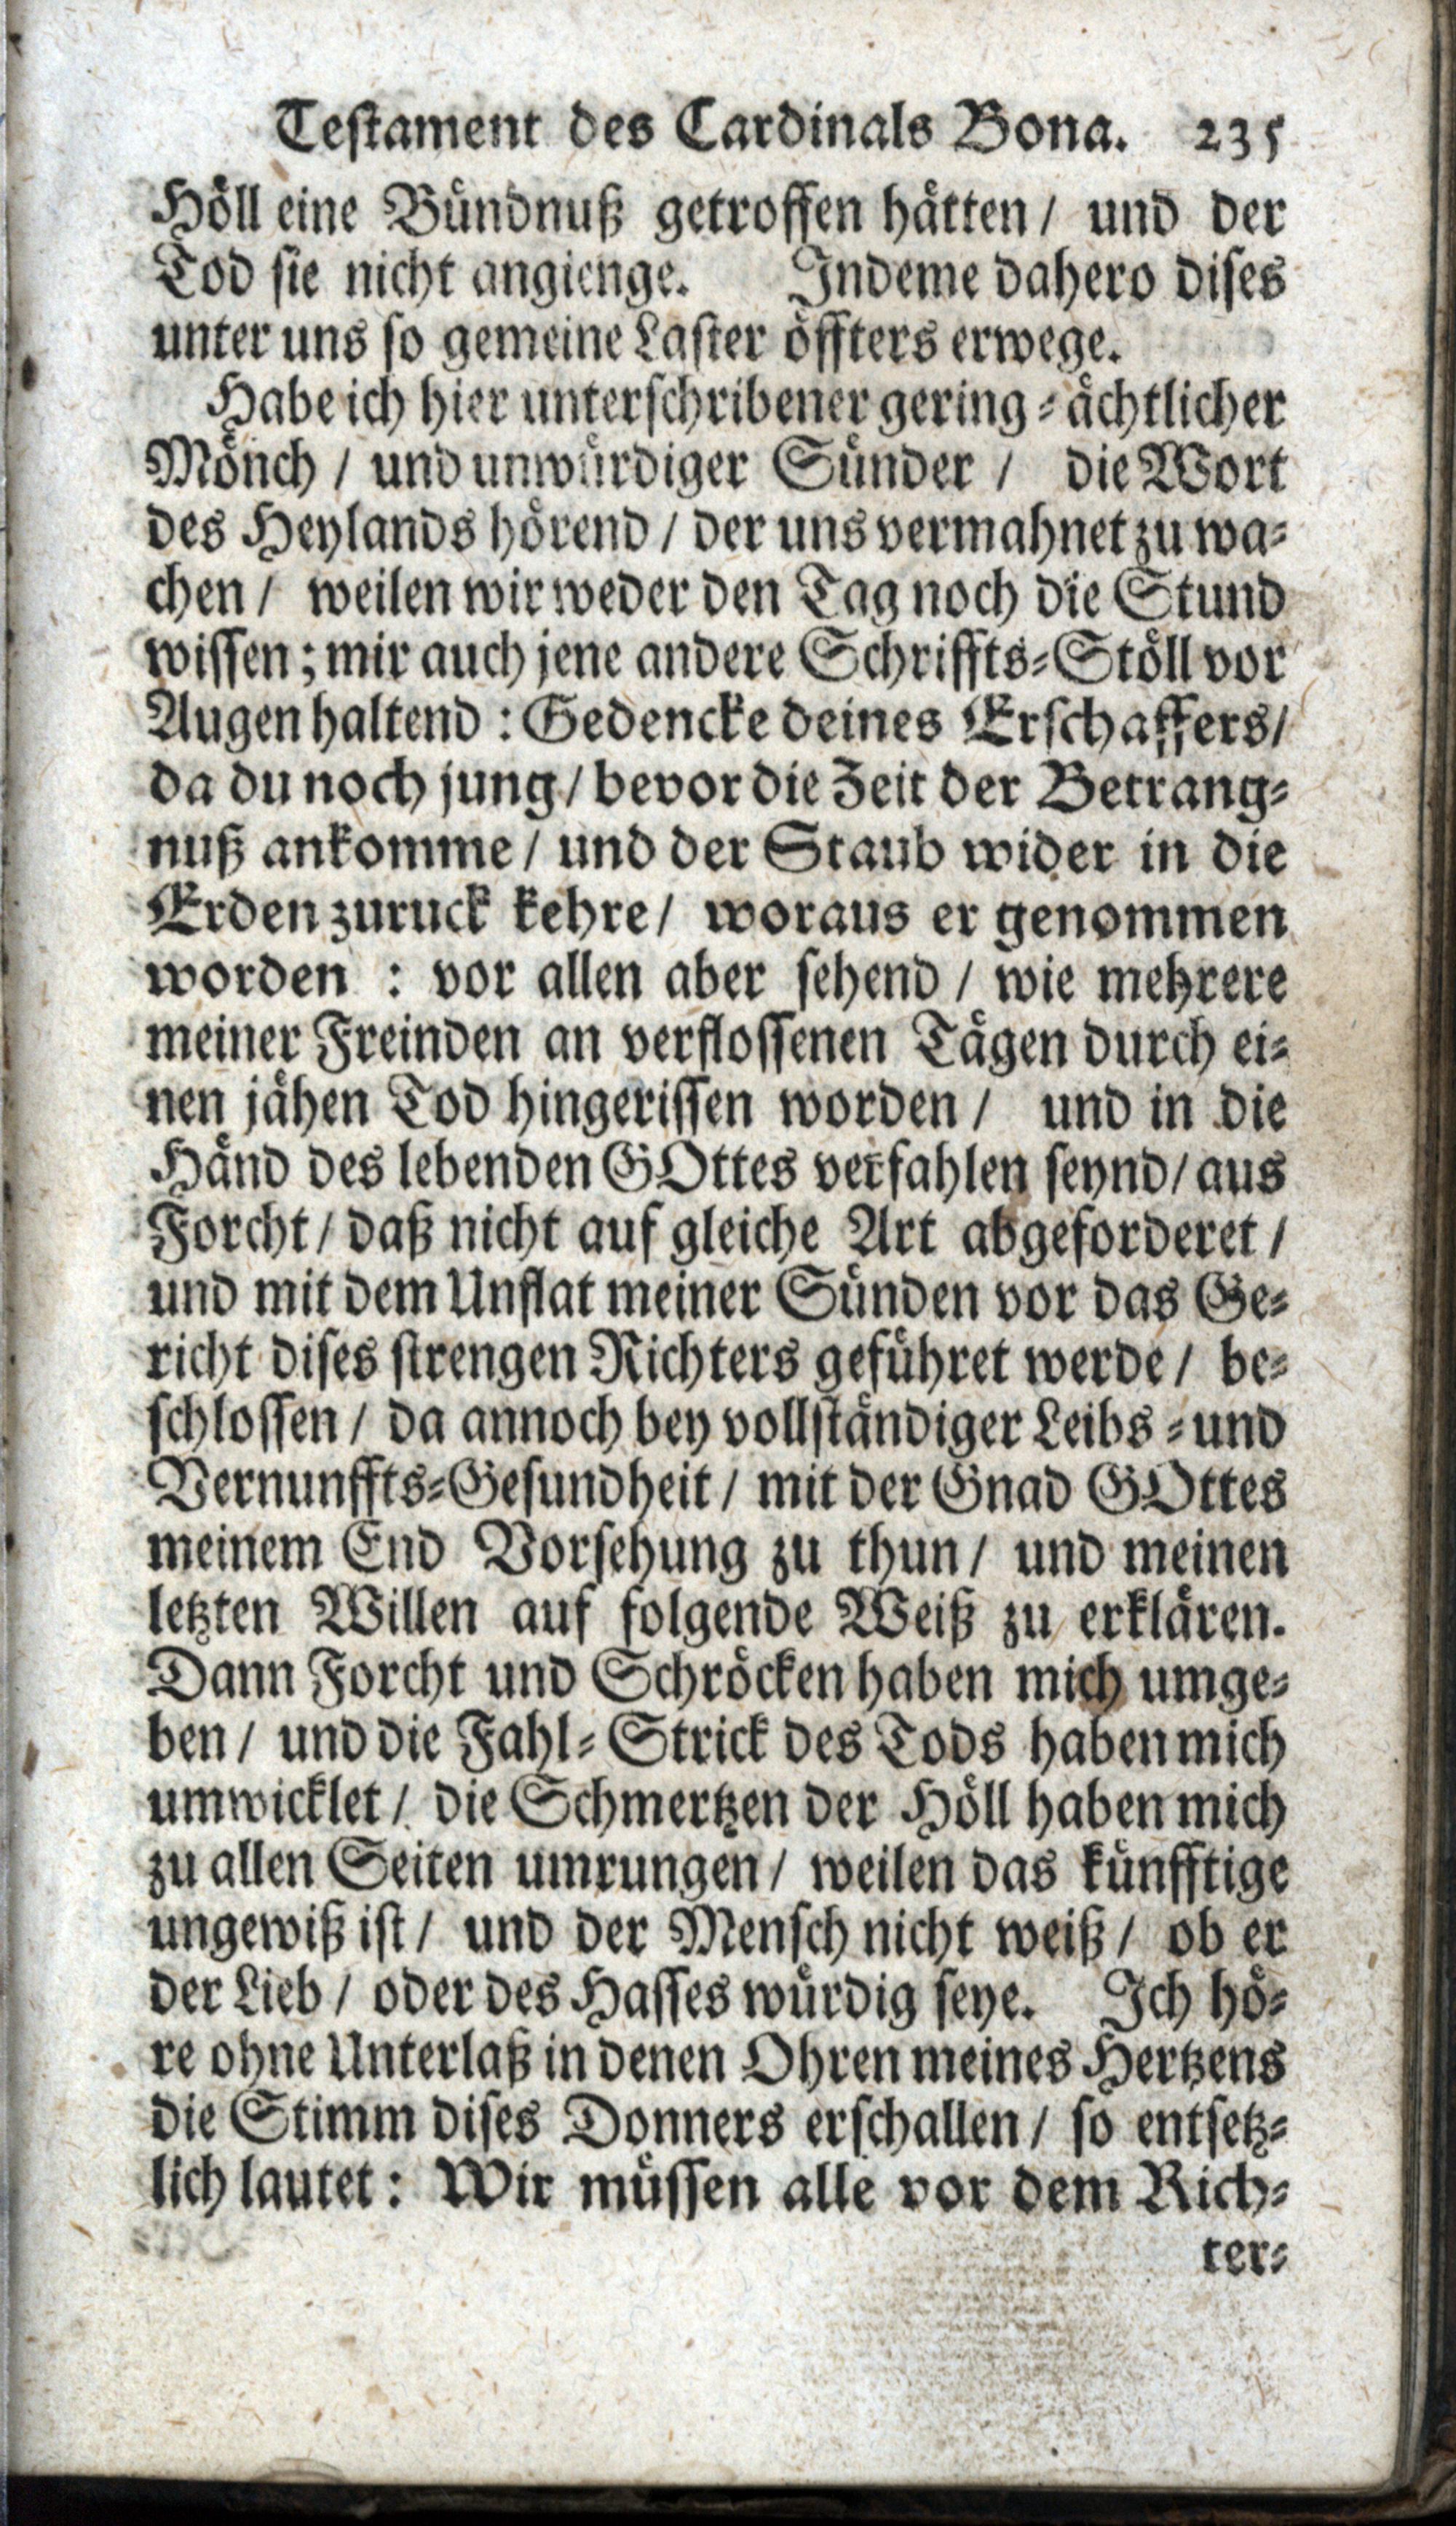 Testament des Cardinals Bona. 235
Höll eine Bündnuß getroffen hätten / und der
Tod sie nicht angienge. Indeme dahero dises
unter uns so gemeine Laster öffters erwege.
Habe ich hier unterschribener gering-ächtlicher
Mönch / und unwürdiger Sünder / die Wort
des Heylands hörend / der uns vermahnet zu wa-
chen / weilen wir weder den Tag noch die Stund
wissen; mir auch jene andere Schriffts-Stöll vor
Augen haltend : Gedencke deines Erschaffers/
da du noch jung / bevor die Zeit der Betrang-
nuß ankomme / und der Staub wider in die
Erden zuruck kehre / woraus er genommen
worden : vor allen aber sehend / wie mehrere
meiner Freinden an verflossenen Tägen durch ei-
nen jähen Tod hingerissen worden / und in die
Händ des lebenden GOttes verfahlen seynd / aus
Forcht / daß nicht auf gleiche Art abgeforderet /
und mit dem Unflat meiner Sünden vor das Ge-
richt dises strengen Richters geführet werde / be-
schlossen / da annoch bey vollständiger Leibs- und
Vernunffts-Gesundheit / mit der Gnad GOttes
meinem End Vorsehung zu thun / und meinen
letzten Willen auf folgende Weiß zu erklären.
Dann Forcht und Schröcken haben mich umge-
ben / und die Fahl-Strick des Tods haben mich
umwicklet / die Schmertzen der Höll haben mich
zu allen Seiten umrungen / weilen das künfftige
ungewiß ist / und der Mensch nicht weiß / ob er
der Lieb / oder des Hasses würdig seye. Ich hö-
re ohne Unterlaß in denen Ohren meines Hertzens
die Stimm dises Donners erschallen / so entsetz-
lich lautet : Wir müssen alle vor dem Rich-
ter-